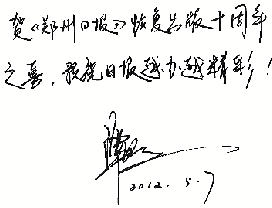 贺《郑州日报》恢复出版十周年
之喜，祝日报越办越精彩！
2012.5.7